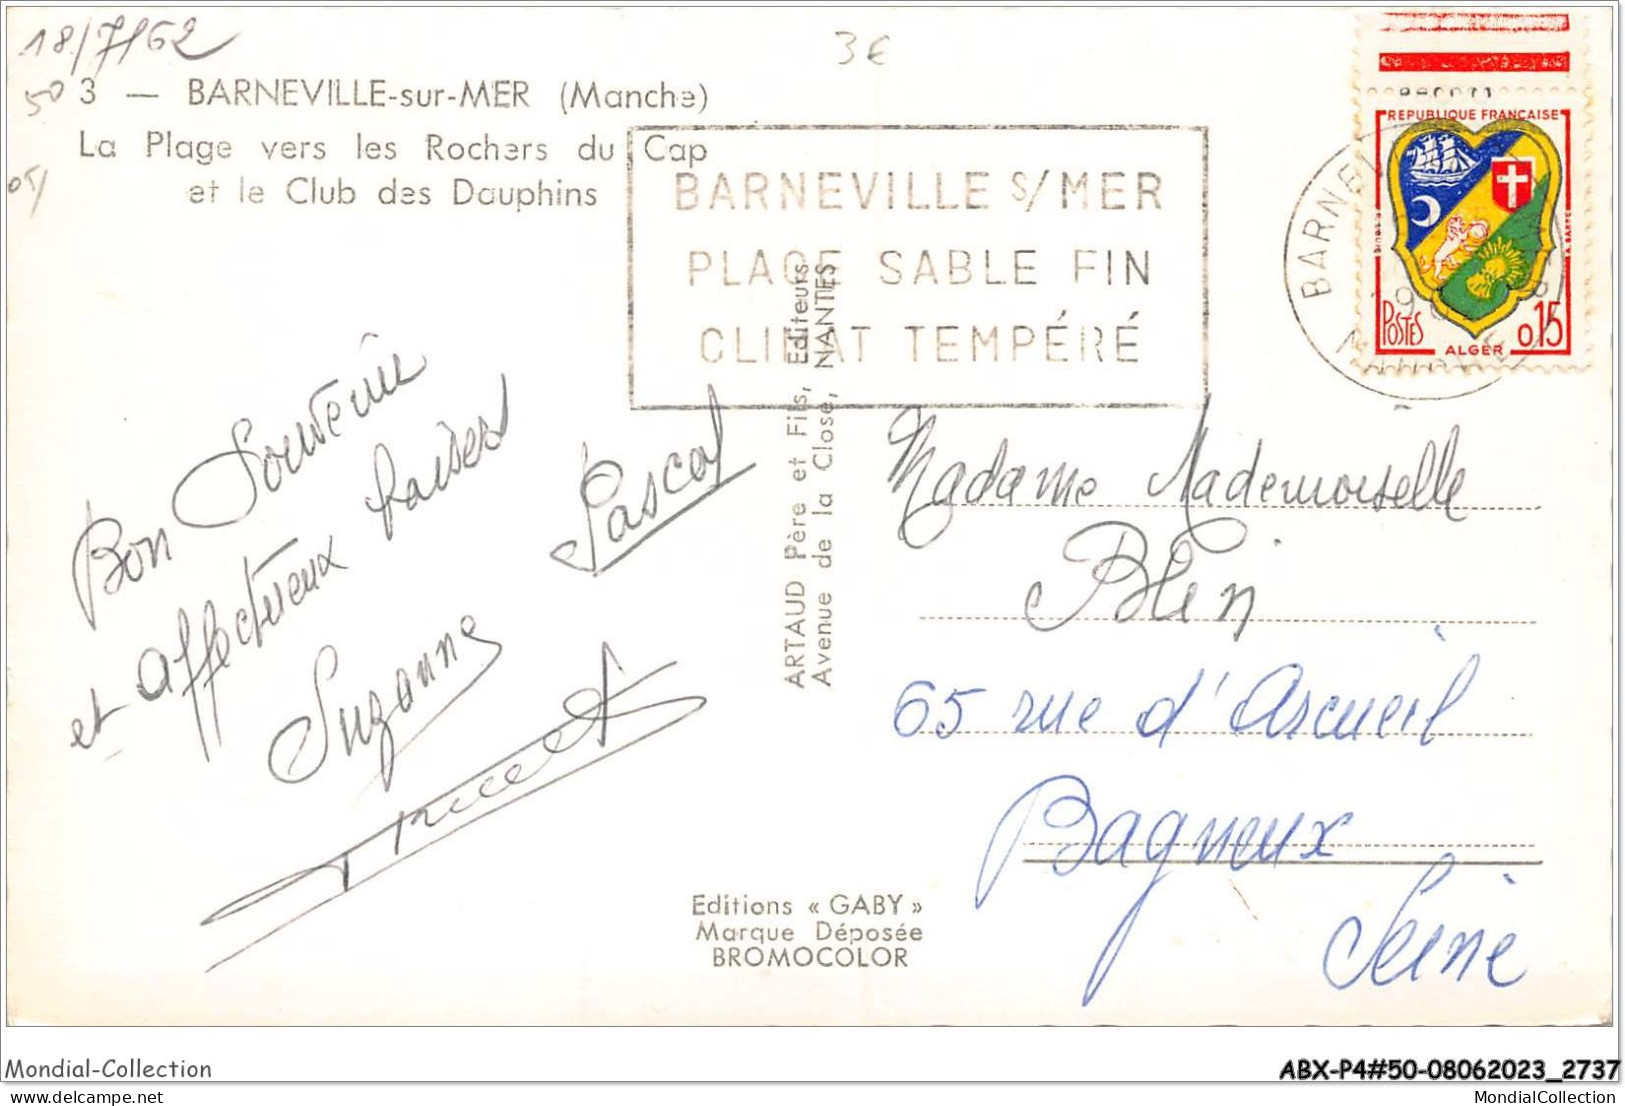 18/7/62
3€
50
3 — BARNEVILLE-sur-MER (Manche)
La Plage vers les Rochers du Cap
et le Club des Dauphins
BARNEVILLE S/MER
PLAGE SABLE FIN
CLIMAT TEMPÉRÉ
REPUBLIQUE FRANÇAISE
POSTES
ALGER
0,15
BARNEV
Bon Souvenir
et affectueux baisers
Pascal
Suzanne
ARTAUD Père et Fils, Editeurs
Avenue de la Close, NANTES
Madame Mademoiselle
Blin
65 rue d'Arcueil
Bagneux
Seine
Editions « GABY »
Marque Déposée
BROMOCOLOR
Mondial-Collection
ABX-P4#50-08062023_2737
delcampe.net
MondialCollection